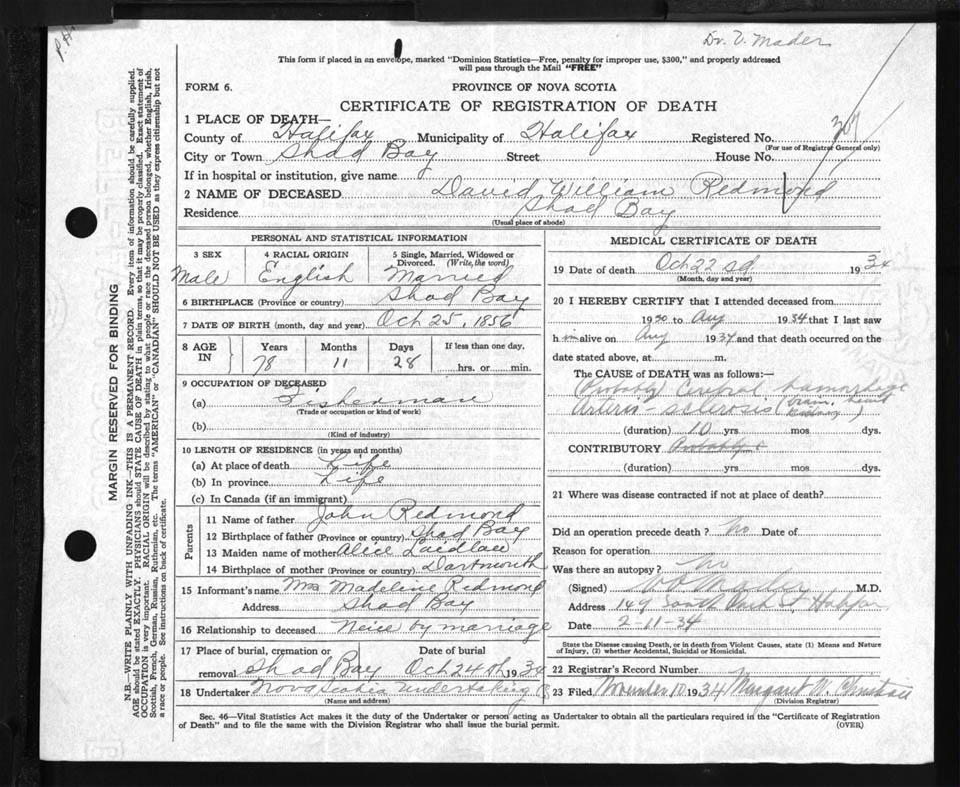 P.H.
Dr. V. Mader
This form if placed in an envelope, marked "Dominion Statistics—Free, penalty for improper use, $300," and properly addressed
will pass through the Mail "FREE"
FORM 6.
PROVINCE OF NOVA SCOTIA
CERTIFICATE OF REGISTRATION OF DEATH
1 PLACE OF DEATH—
County of Halifax Municipality of Halifax Registered No.
(For use of Registrar General only)
City or Town Shad Bay Street House No.
If in hospital or institution, give name
2 NAME OF DECEASED David William Redmond
Residence Shad Bay
(Usual place of abode)
PERSONAL AND STATISTICAL INFORMATION
3 SEX 4 RACIAL ORIGIN 5 Single, Married, Widowed or Divorced. (Write the word)
Male English Married
6 BIRTHPLACE (Province or country) Shad Bay
7 DATE OF BIRTH (month, day and year) Oct 25, 1856
8 AGE IN Years Months Days If less than one day,
78 11 28 hrs. or min.
9 OCCUPATION OF DECEASED
(a) Fisherman
(Trade or occupation or kind of work)
(b)
(Kind of industry)
10 LENGTH OF RESIDENCE (in years and months)
(a) At place of death Life
(b) In province Life
(c) In Canada (if an immigrant)
Parents
11 Name of father John Redmond
12 Birthplace of father (Province or country) Shad Bay
13 Maiden name of mother Alice Laidlaw
14 Birthplace of mother (Province or country) Dartmouth
15 Informant's name Mrs Madeline Redmond
Address Shad Bay
16 Relationship to deceased Neice by marriage
17 Place of burial, cremation or Date of burial
removal Shad Bay Oct 24th 1934
18 Undertaker Nova Scotia Undertaking
(Name and address)
MEDICAL CERTIFICATE OF DEATH
19 Date of death Oct 22 nd 1934
(Month, day and year)
20 I HEREBY CERTIFY that I attended deceased from
1930 to Aug 1934 that I last saw
h im alive on Aug 1934 and that death occurred on the
date stated above, at m.
The CAUSE of DEATH was as follows:—
(Probably) Cerebral hamorrhage
Arterio-sclerosis (brain, heart
kidney)
(duration) 10 yrs. mos. dys.
CONTRIBUTORY Probably
(duration) yrs. mos. dys.
21 Where was disease contracted if not at place of death?
Did an operation precede death? No Date of
Reason for operation
Was there an autopsy? No
(Signed) Mader M.D.
Address 149 South Park St Halifax
Date 2-11-34
State the Disease causing Death, or in death from Violent Causes, state (1) Means and Nature
of Injury, (2) whether Accidental, Suicidal or Homicidal.
22 Registrar's Record Number
23 Filed November 10 1934 Margaret W.
(Division Registrar)
Sec. 46—Vital Statistics Act makes it the duty of the Undertaker or person acting as Undertaker to obtain all the particulars required in the "Certificate of Registration
of Death" and to file the same with the Division Registrar who shall issue the burial permit. (OVER)
MARGIN RESERVED FOR BINDING
N.B.—WRITE PLAINLY WITH UNFADING INK—THIS IS A PERMANENT RECORD. Every item of information should be carefully supplied.
AGE should be stated EXACTLY. PHYSICIANS should STATE CAUSE OF DEATH in plain terms, so that it may be properly classified. Exact statement of
OCCUPATION is very important. RACIAL ORIGIN will be described by stating to what people or race the deceased person belonged, whether English, Irish,
Scottish, French, German, Russian, Ruthenian, etc. The terms "AMERICAN" or "CANADIAN" SHOULD NOT BE USED as they express citizenship but not
a race or people. See instructions on back of certificate.